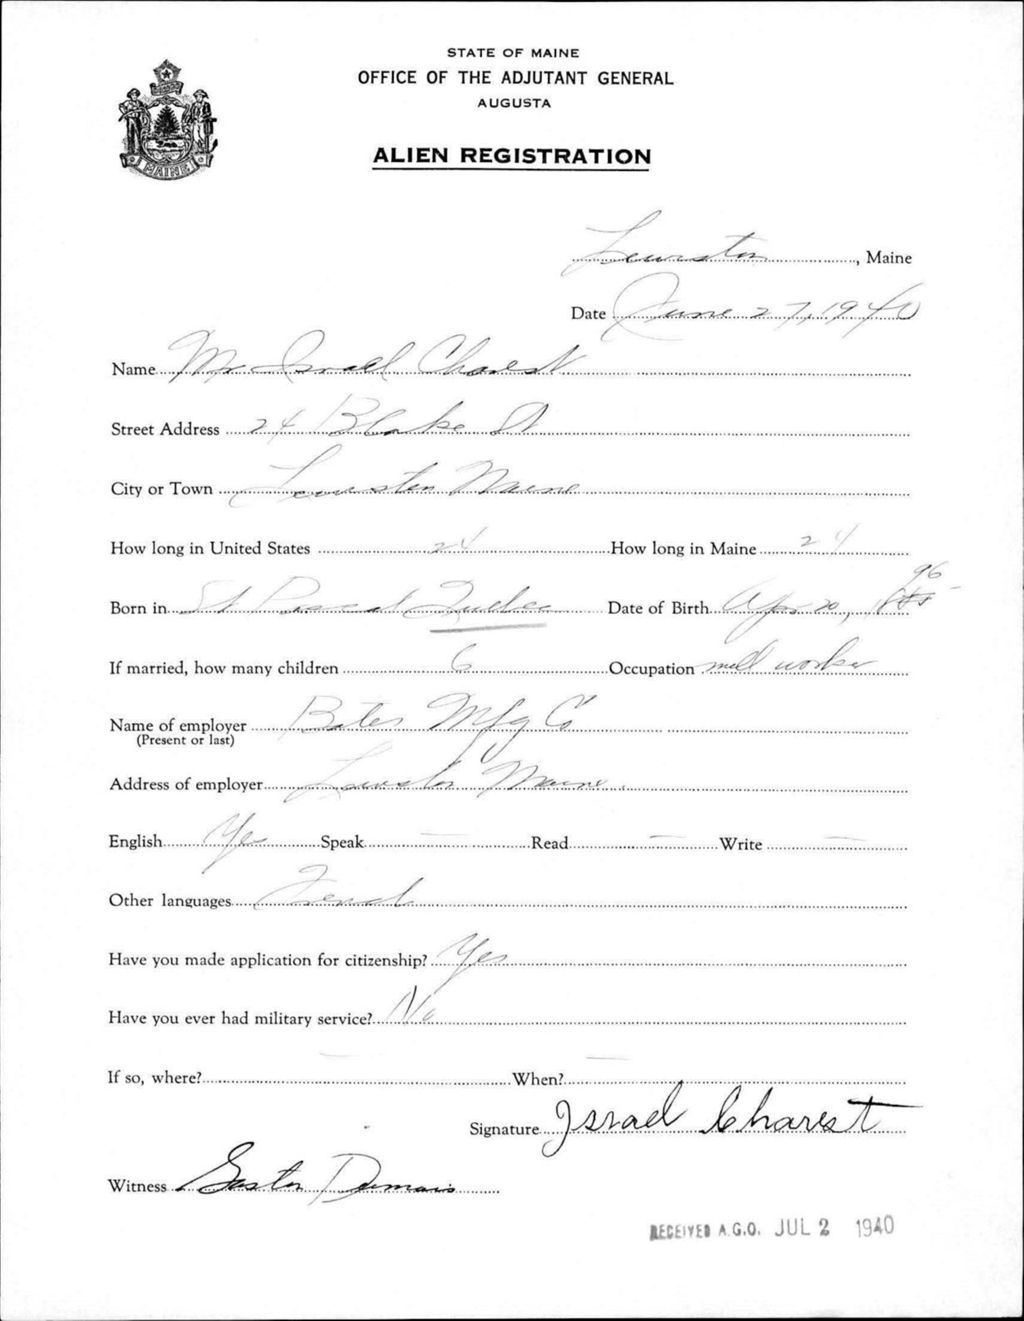 STATE OF MAINE
OFFICE OF THE ADJUTANT GENERAL
AUGUSTA
ALIEN REGISTRATION
MAINE
Lewiston, Maine
Date June 27, 1940
Name Mr Israel Charest
Street Address 24 Blake St
City or Town Lewiston Maine
How long in United States 24 How long in Maine 24
96
Born in St Pascal Quebec Date of Birth Apr 20, 18
If married, how many children 6 Occupation mill worker
Name of employer Bates Mfg Co
(Present or last)
Address of employer Lewiston Maine.
English Yes Speak — Read — Write —
Other languages French
Have you made application for citizenship? Yes
Have you ever had military service? No
If so, where? — When? —
Signature Israel Charest
Witness Gaston Dumais
RECEIVED A.G.O. JUL 2 1940